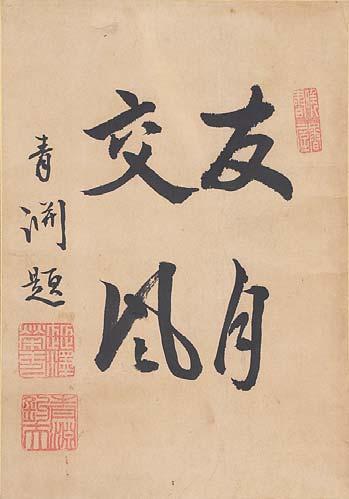 友月
交風
青淵題